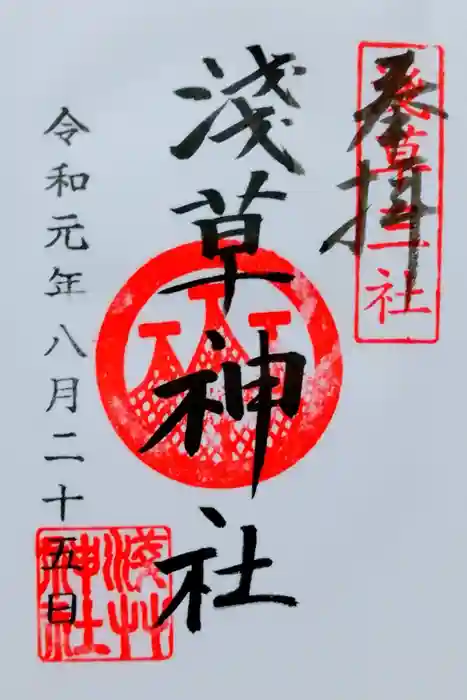 奉拝
淺草三社
淺草神社
令和元年八月二十五日
淺草神社